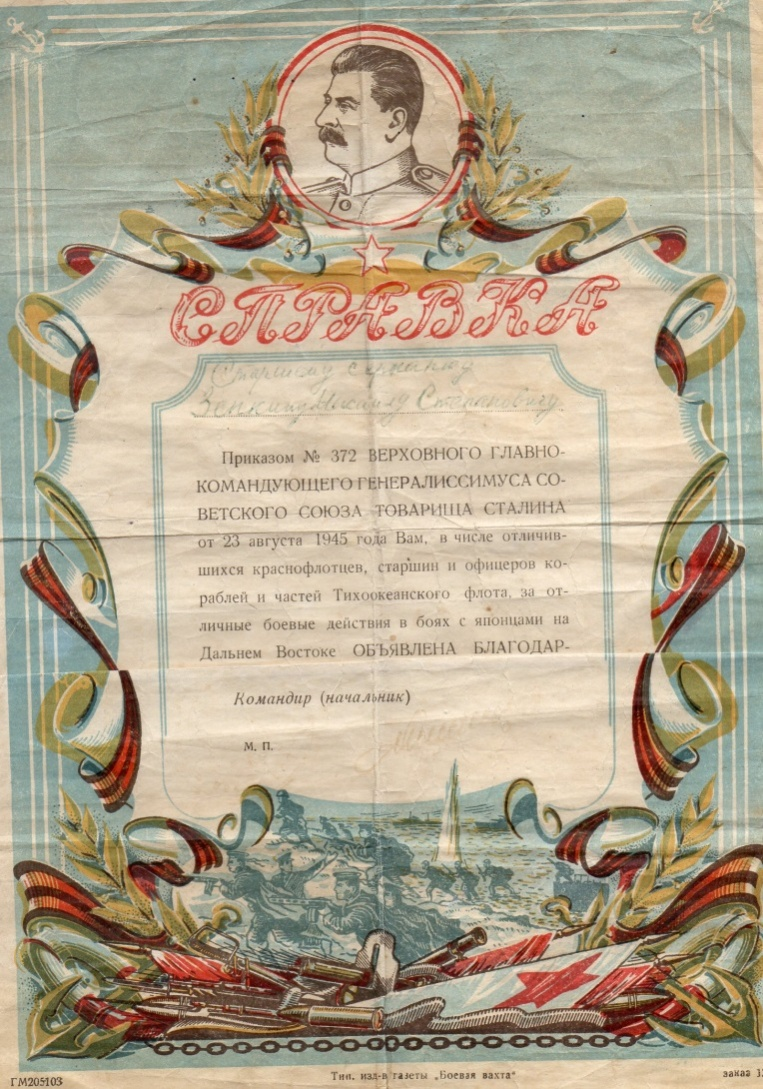 СПРАВКА
Старшему сержанту
Зенкину Михаилу Степановичу
Приказом № 372 ВЕРХОВНОГО ГЛАВНО-
КОМАНДУЮЩЕГО ГЕНЕРАЛИССИМУСА СО-
ВЕТСКОГО СОЮЗА ТОВАРИЩА СТАЛИНА
от 23 августа 1945 года Вам, в числе отличив-
шихся краснофлотцев, старшин и офицеров ко-
раблей и частей Тихоокеанского флота, за от-
личные боевые действия в боях с японцами на
Дальнем Востоке ОБЪЯВЛЕНА БЛАГОДАР-
Командир (начальник)
М. П.
ГМ205103
Тип. изд-в газеты „Боевая вахта“
заказ